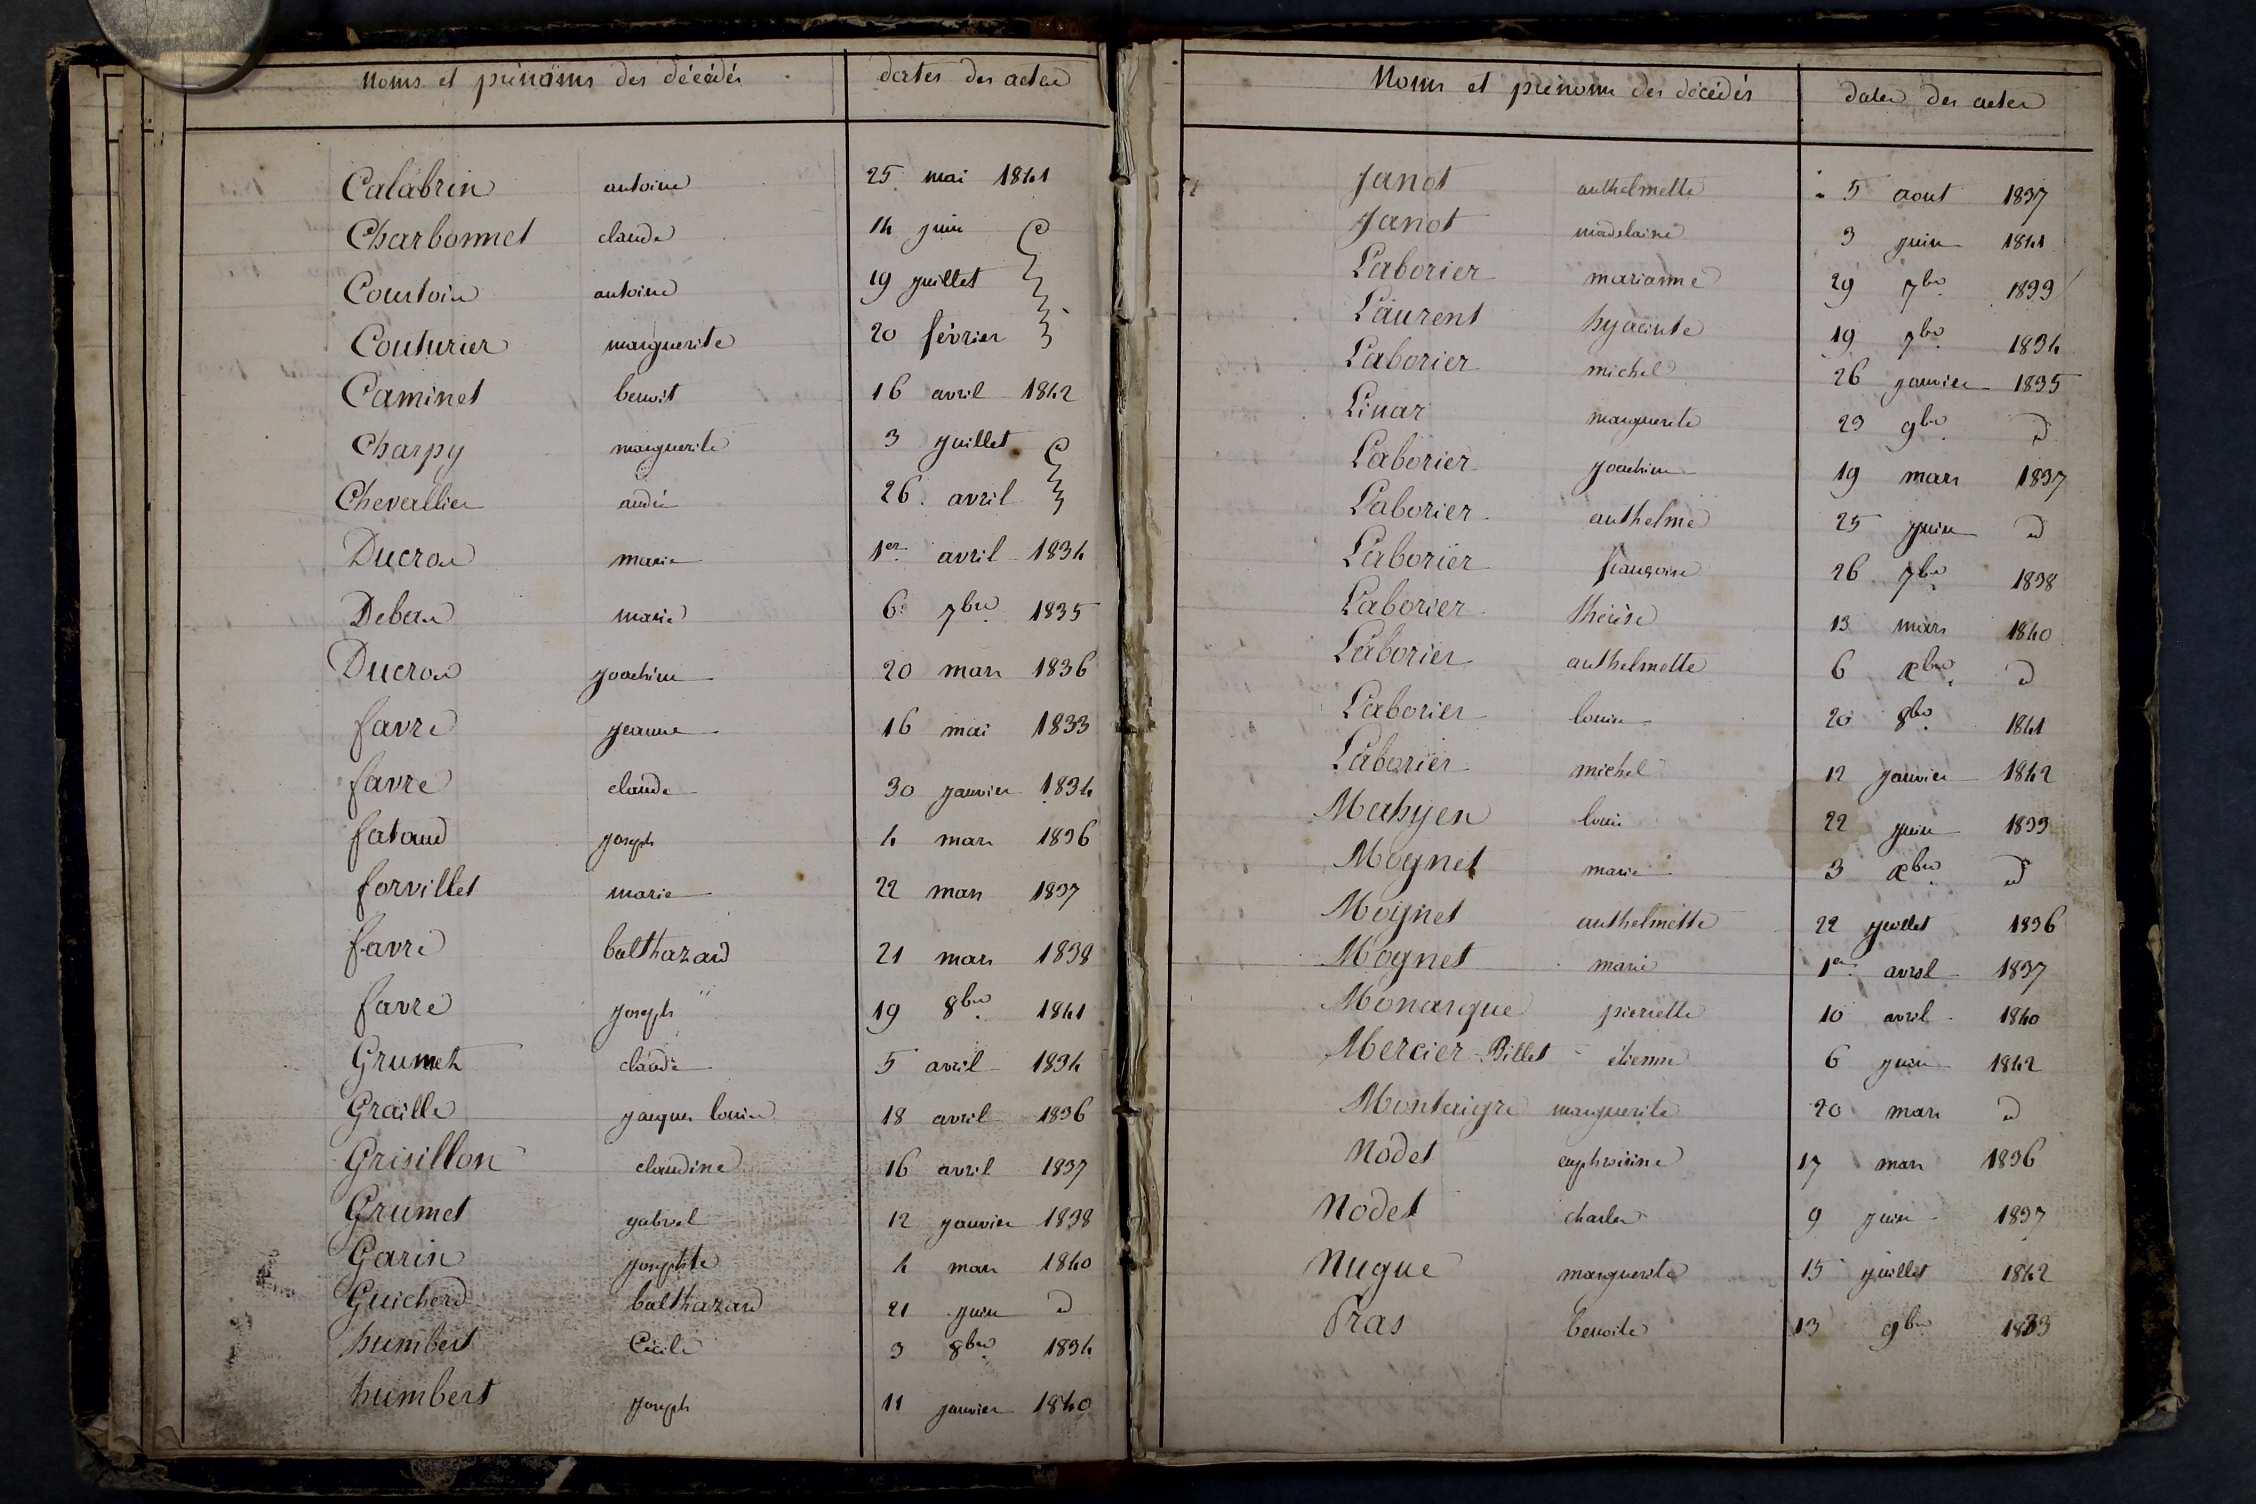 Noms et prénoms des décédés dates des actes
Calabrin antoine 25 mai 1841
Charbonnet claude 14 juin
Courtois antoine 19 juillet
Couturier marguerite 20 février
Caminet benoit 16 avril 1842
Charpy marguerite 3 juillet
Chevallier andré 26 avril
Ducros marie 1er avril 1834
Debas marie 6 7bre 1835
Ducros joachim 20 mars 1836
favre jeanne 16 mai 1833
favre claude 30 janvier 1834
fataud joseph 4 mars 1836
forvillet marie 22 mars 1837
favre balthazard 21 mars 1838
favre joseph 19 8bre 1841
Grumet claude 5 avril 1834
Graille jacques louis 18 avril 1836
Grisillon claudine 16 avril 1837
Grumet gabriel 12 janvier 1838
Garin josephte 4 mars 1840
Guicherd balthazard 21 juin d
humbert Cécile 3 8bre 1834
humbert joseph 11 janvier 1840
Noms et prénoms des décédés dates des actes
Janot anthelmette 5 aout 1837
Janot madelaine 3 juin 1841
Laborier marianne 29 7bre 1833
Laurent hyacinte 19 7bre 1834
Laborier michel 26 janvier 1835
Linar marguerite 23 9bre d
Laborier joachim 19 mars 1837
Laborier anthelme 25 juin d
Laborier françoise 26 7bre 1838
Laborier thérèse 13 mars 1840
Laborier anthelmette 6 xbre d
Laborier louise 20 8bre 1841
Laborier michel 12 janvier 1842
Mahyen louis 22 juin 1833
Mognet marie 3 xbre d
Moynet anthelmette 22 juillet 1836
Mognet marie 1er avril 1837
Monarque pierrette 10 avril 1840
Mercier-Billet étienne 6 juin 1842
Montaigre marguerite 20 mars d
Nodet euphrosine 17 mars 1836
Nodet charles 9 juin 1837
Nugue marguerite 15 juillet 1842
Pras benoite 13 9bre 1833